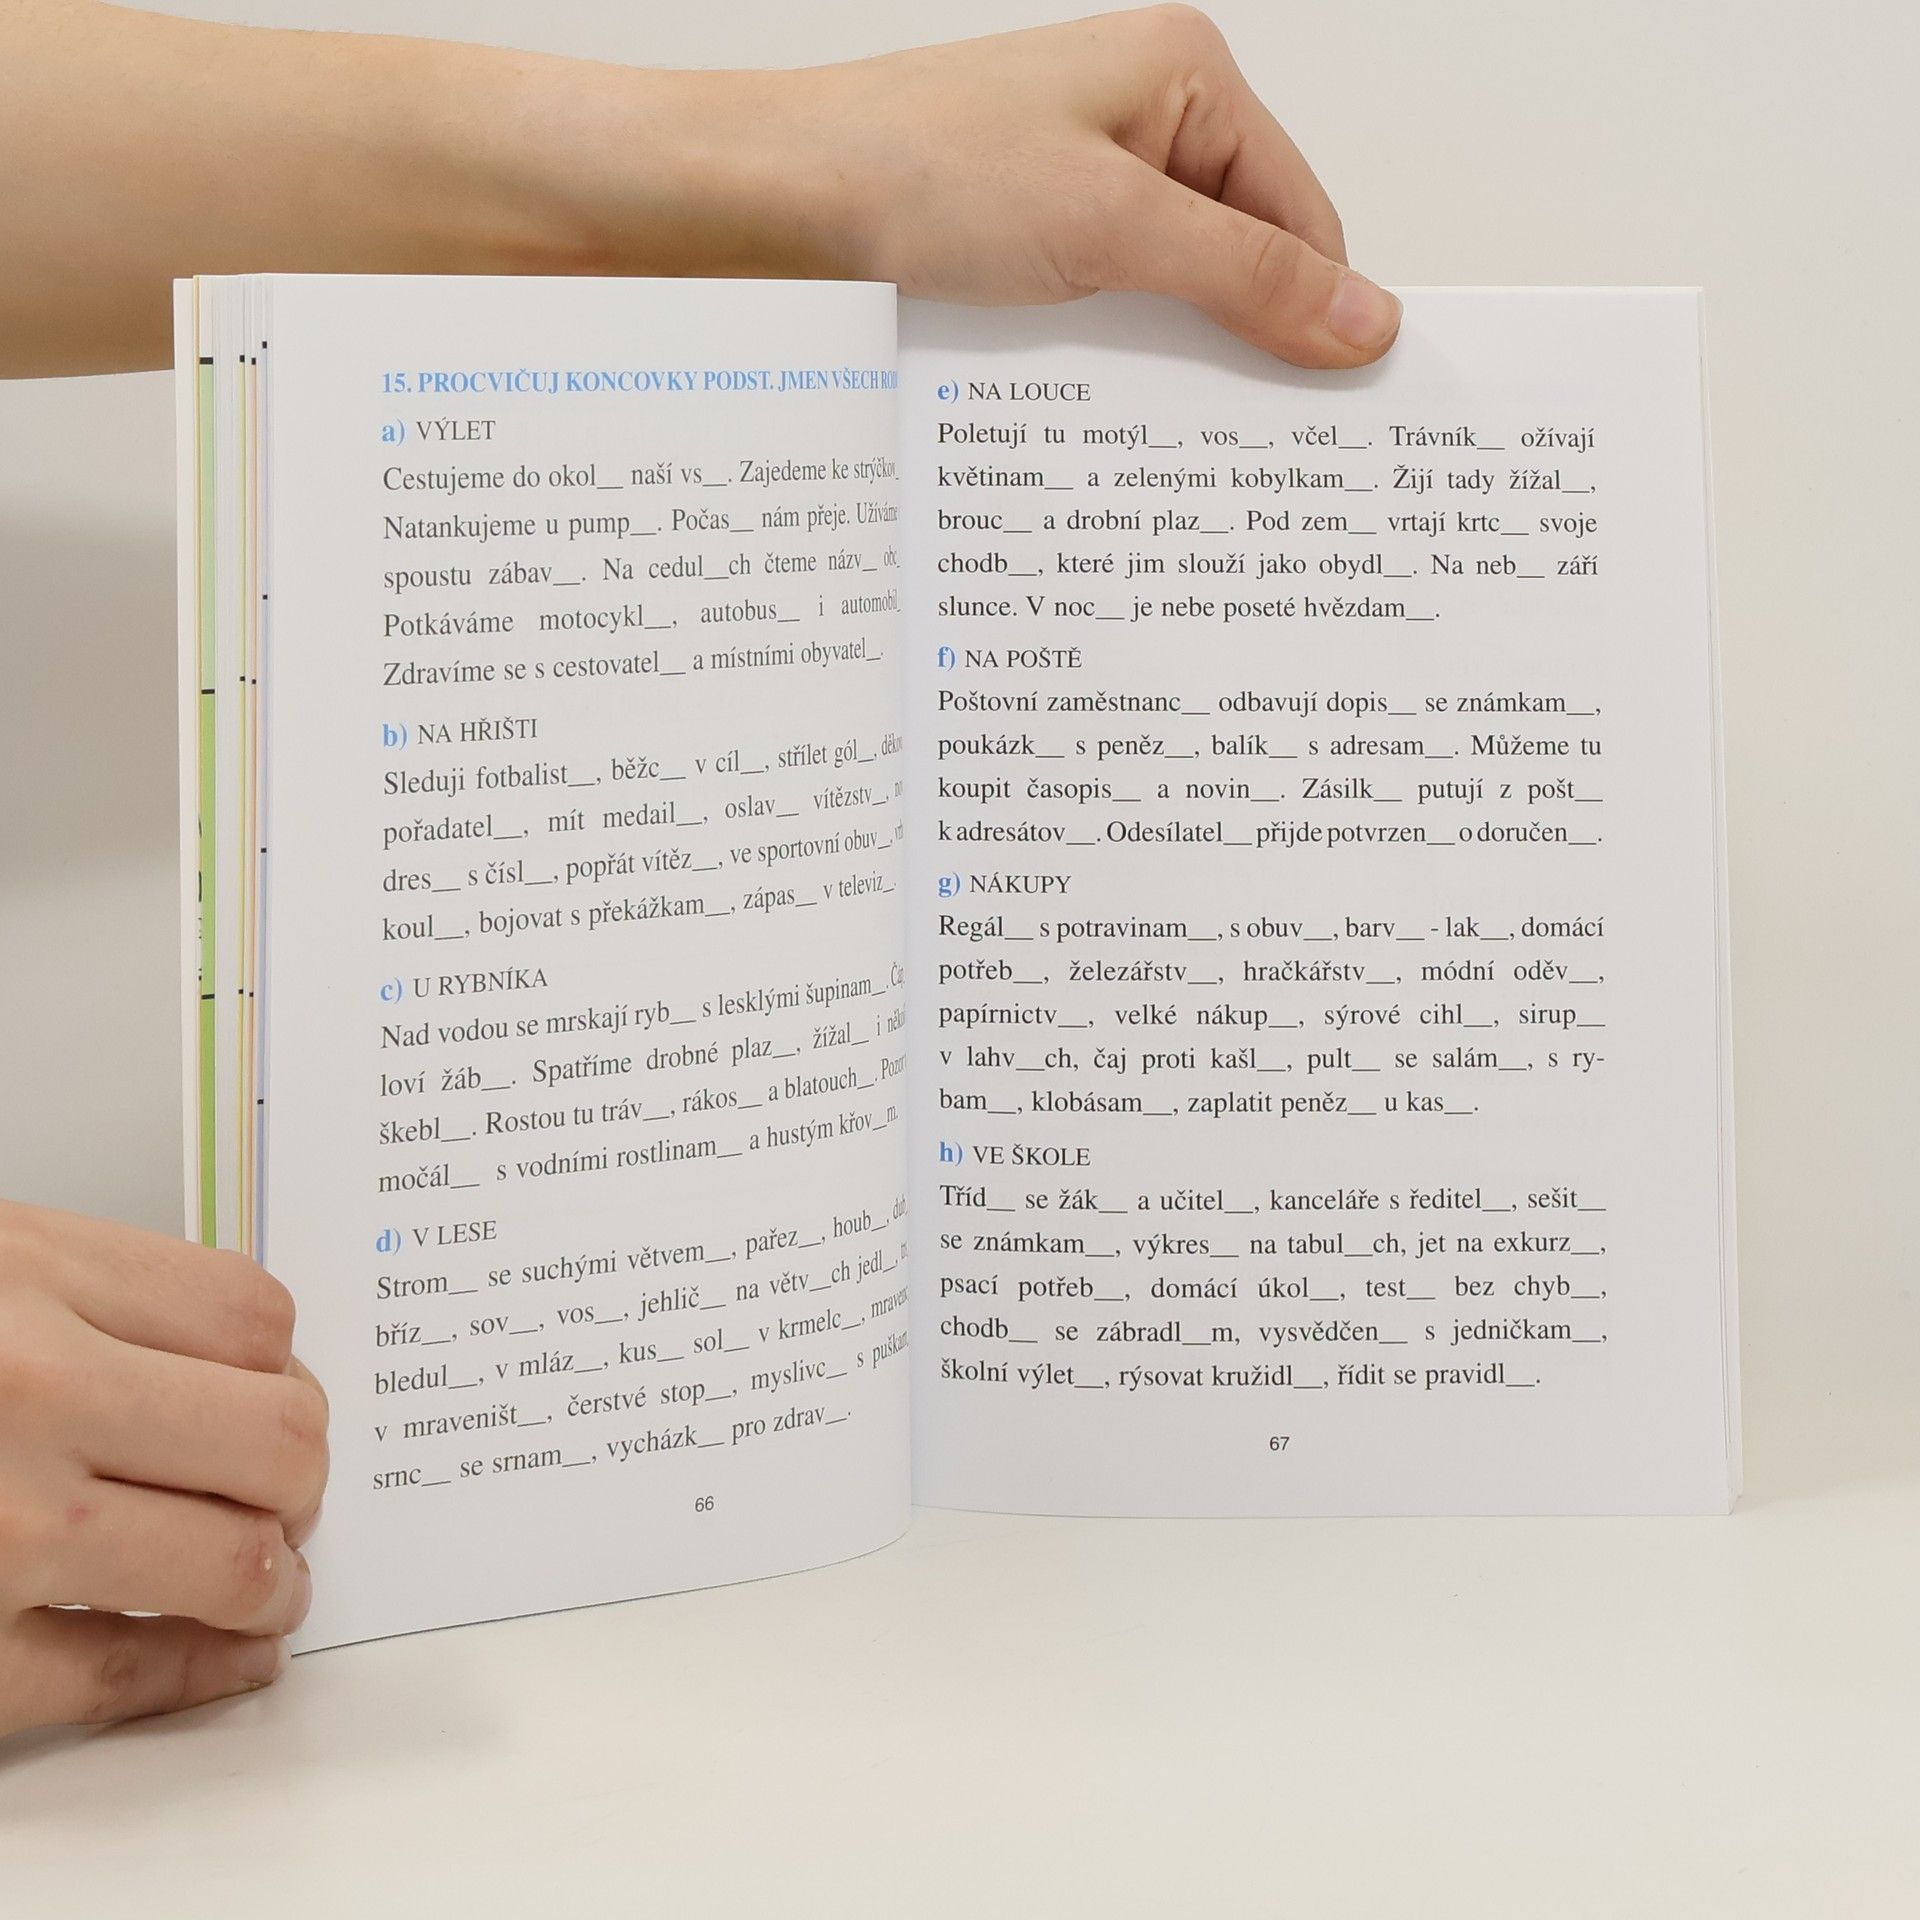 15. PROCVIČUJ KONCOVKY PODST. JMEN VŠECH
a) VÝLET
Cestujeme do okol__ naší vs__. Zajedeme ke strýčkov_
Natankujeme u pump__. Počas__ nám přeje. Užíváme
spoustu zábav__. Na cedul__ch čteme názv__
Potkáváme motocykl__, autobus__ i automobil_
Zdravíme se s cestovatel__ a místními obyvatel__.
b) NA HŘIŠTI
Sleduji fotbalist__, běžc__ v cíl__, střílet gól__,
pořadatel__, mít medail__, oslav__ vítězstv__,
dres__ s čísl__, popřát vítěz__, ve sportovní obuv__,
koul__, bojovat s překážkam__, zápas__ v televiz__.
c) U RYBNÍKA
Nad vodou se mrskají ryb__ s lesklými šupinam__.
loví žáb__. Spatříme drobné plaz__, žížal__ i
škebl__. Rostou tu tráv__, rákos__ a blatouch__.
močál__ s vodními rostlinam__ a hustým křov__m.
d) V LESE
Strom__ se suchými větvem__, pařez__, houb__,
bříz__, sov__, vos__, jehlič__ na větv__ch jedl__,
bledul__, v mláz__, kus__ sol__ v krmelc__,
v mraveništ__, čerstvé stop__, myslivc__ s puškam
srnc__ se srnam__, vycházk__ pro zdrav__.
66
e) NA LOUCE
Poletují tu motýl__, vos__, včel__. Trávník__ ožívají
květinam__ a zelenými kobylkam__. Žijí tady žížal__,
brouc__ a drobní plaz__. Pod zem__ vrtají krtc__ svoje
chodb__, které jim slouží jako obydl__. Na neb__ září
slunce. V noc__ je nebe poseté hvězdam__.
f) NA POŠTĚ
Poštovní zaměstnanc__ odbavují dopis__ se známkam__,
poukázk__ s peněz__, balík__ s adresam__. Můžeme tu
koupit časopis__ a novin__. Zásilk__ putují z pošt__
k adresátov__. Odesílatel__ přijde potvrzen__ o doručen__.
g) NÁKUPY
Regál__ s potravinam__, s obuv__, barv__ - lak__, domácí
potřeb__, železářstv__, hračkářstv__, módní oděv__,
papírnictv__, velké nákup__, sýrové cihl__, sirup__
v lahv__ch, čaj proti kašl__, pult__ se salám__, s ry-
bam__, klobásam__, zaplatit peněz__ u kas__.
h) VE ŠKOLE
Tříd__ se žák__ a učitel__, kanceláře s ředitel__, sešit__
se známkam__, výkres__ na tabul__ch, jet na exkurz__,
psací potřeb__, domácí úkol__, test__ bez chyb__,
chodb__ se zábradl__m, vysvědčen__ s jedničkam__,
školní výlet__, rýsovat kružidl__, řídit se pravidl__.
67